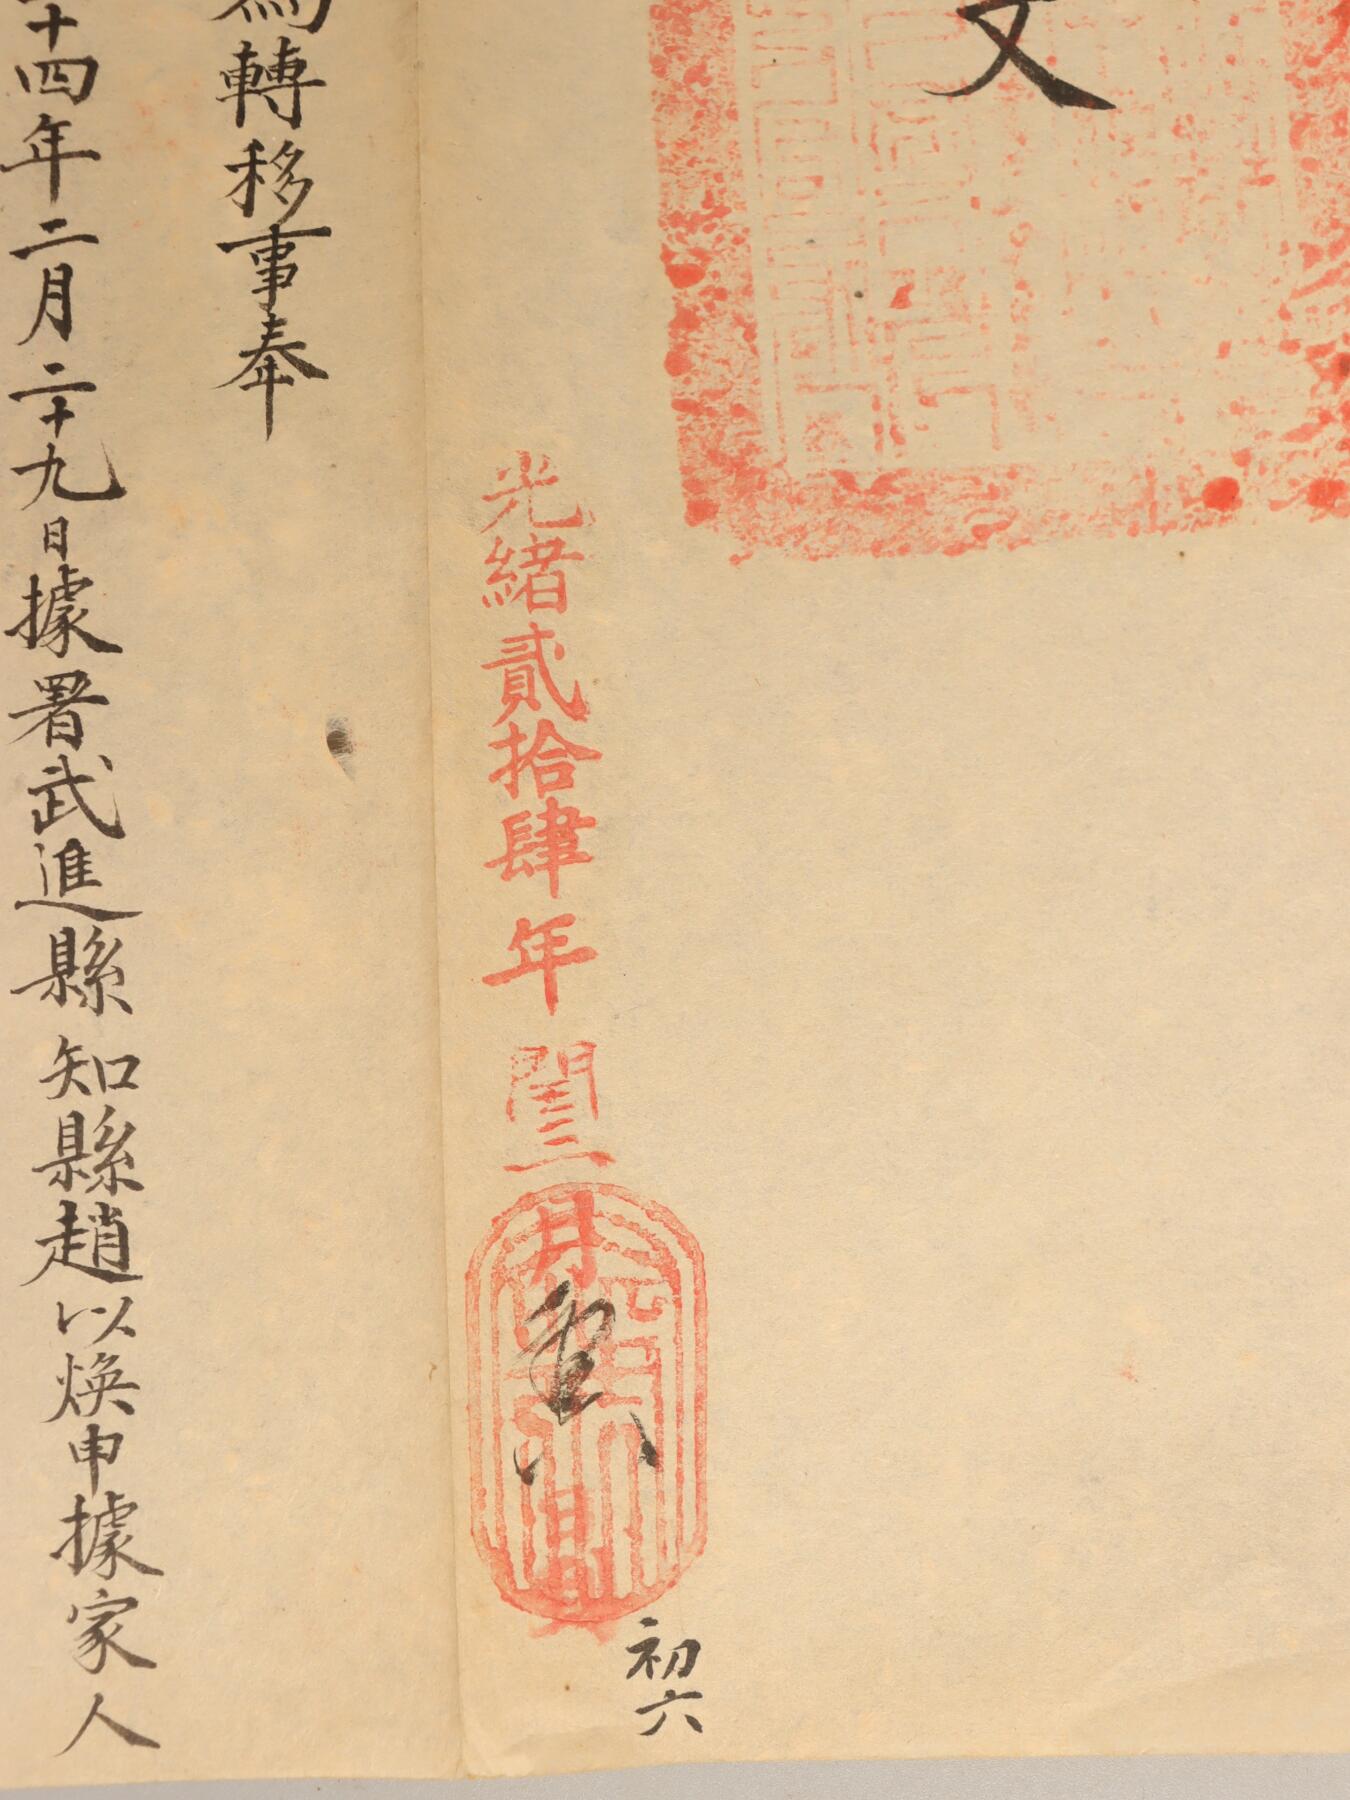 文
光緒貳拾肆年閏三月
初六
爲轉移事奉
十四年二月二十九日據署武進縣知縣趙以煥申據家人